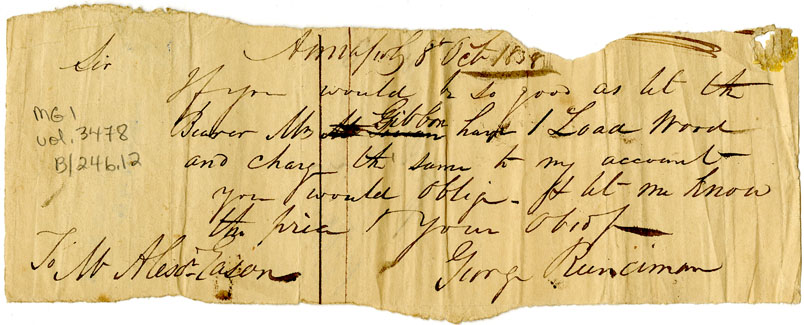 Annapolis 8 Oct 1838
Sir
If you would be so good as let the
Bearer Mrs Gibbon have 1 Load Wood
and charge the same to my account
you would oblige - & let me know
the price & Your Obdt
George Runciman
To Mr Alexr Eason
MG1
vol. 3478
B/246.12